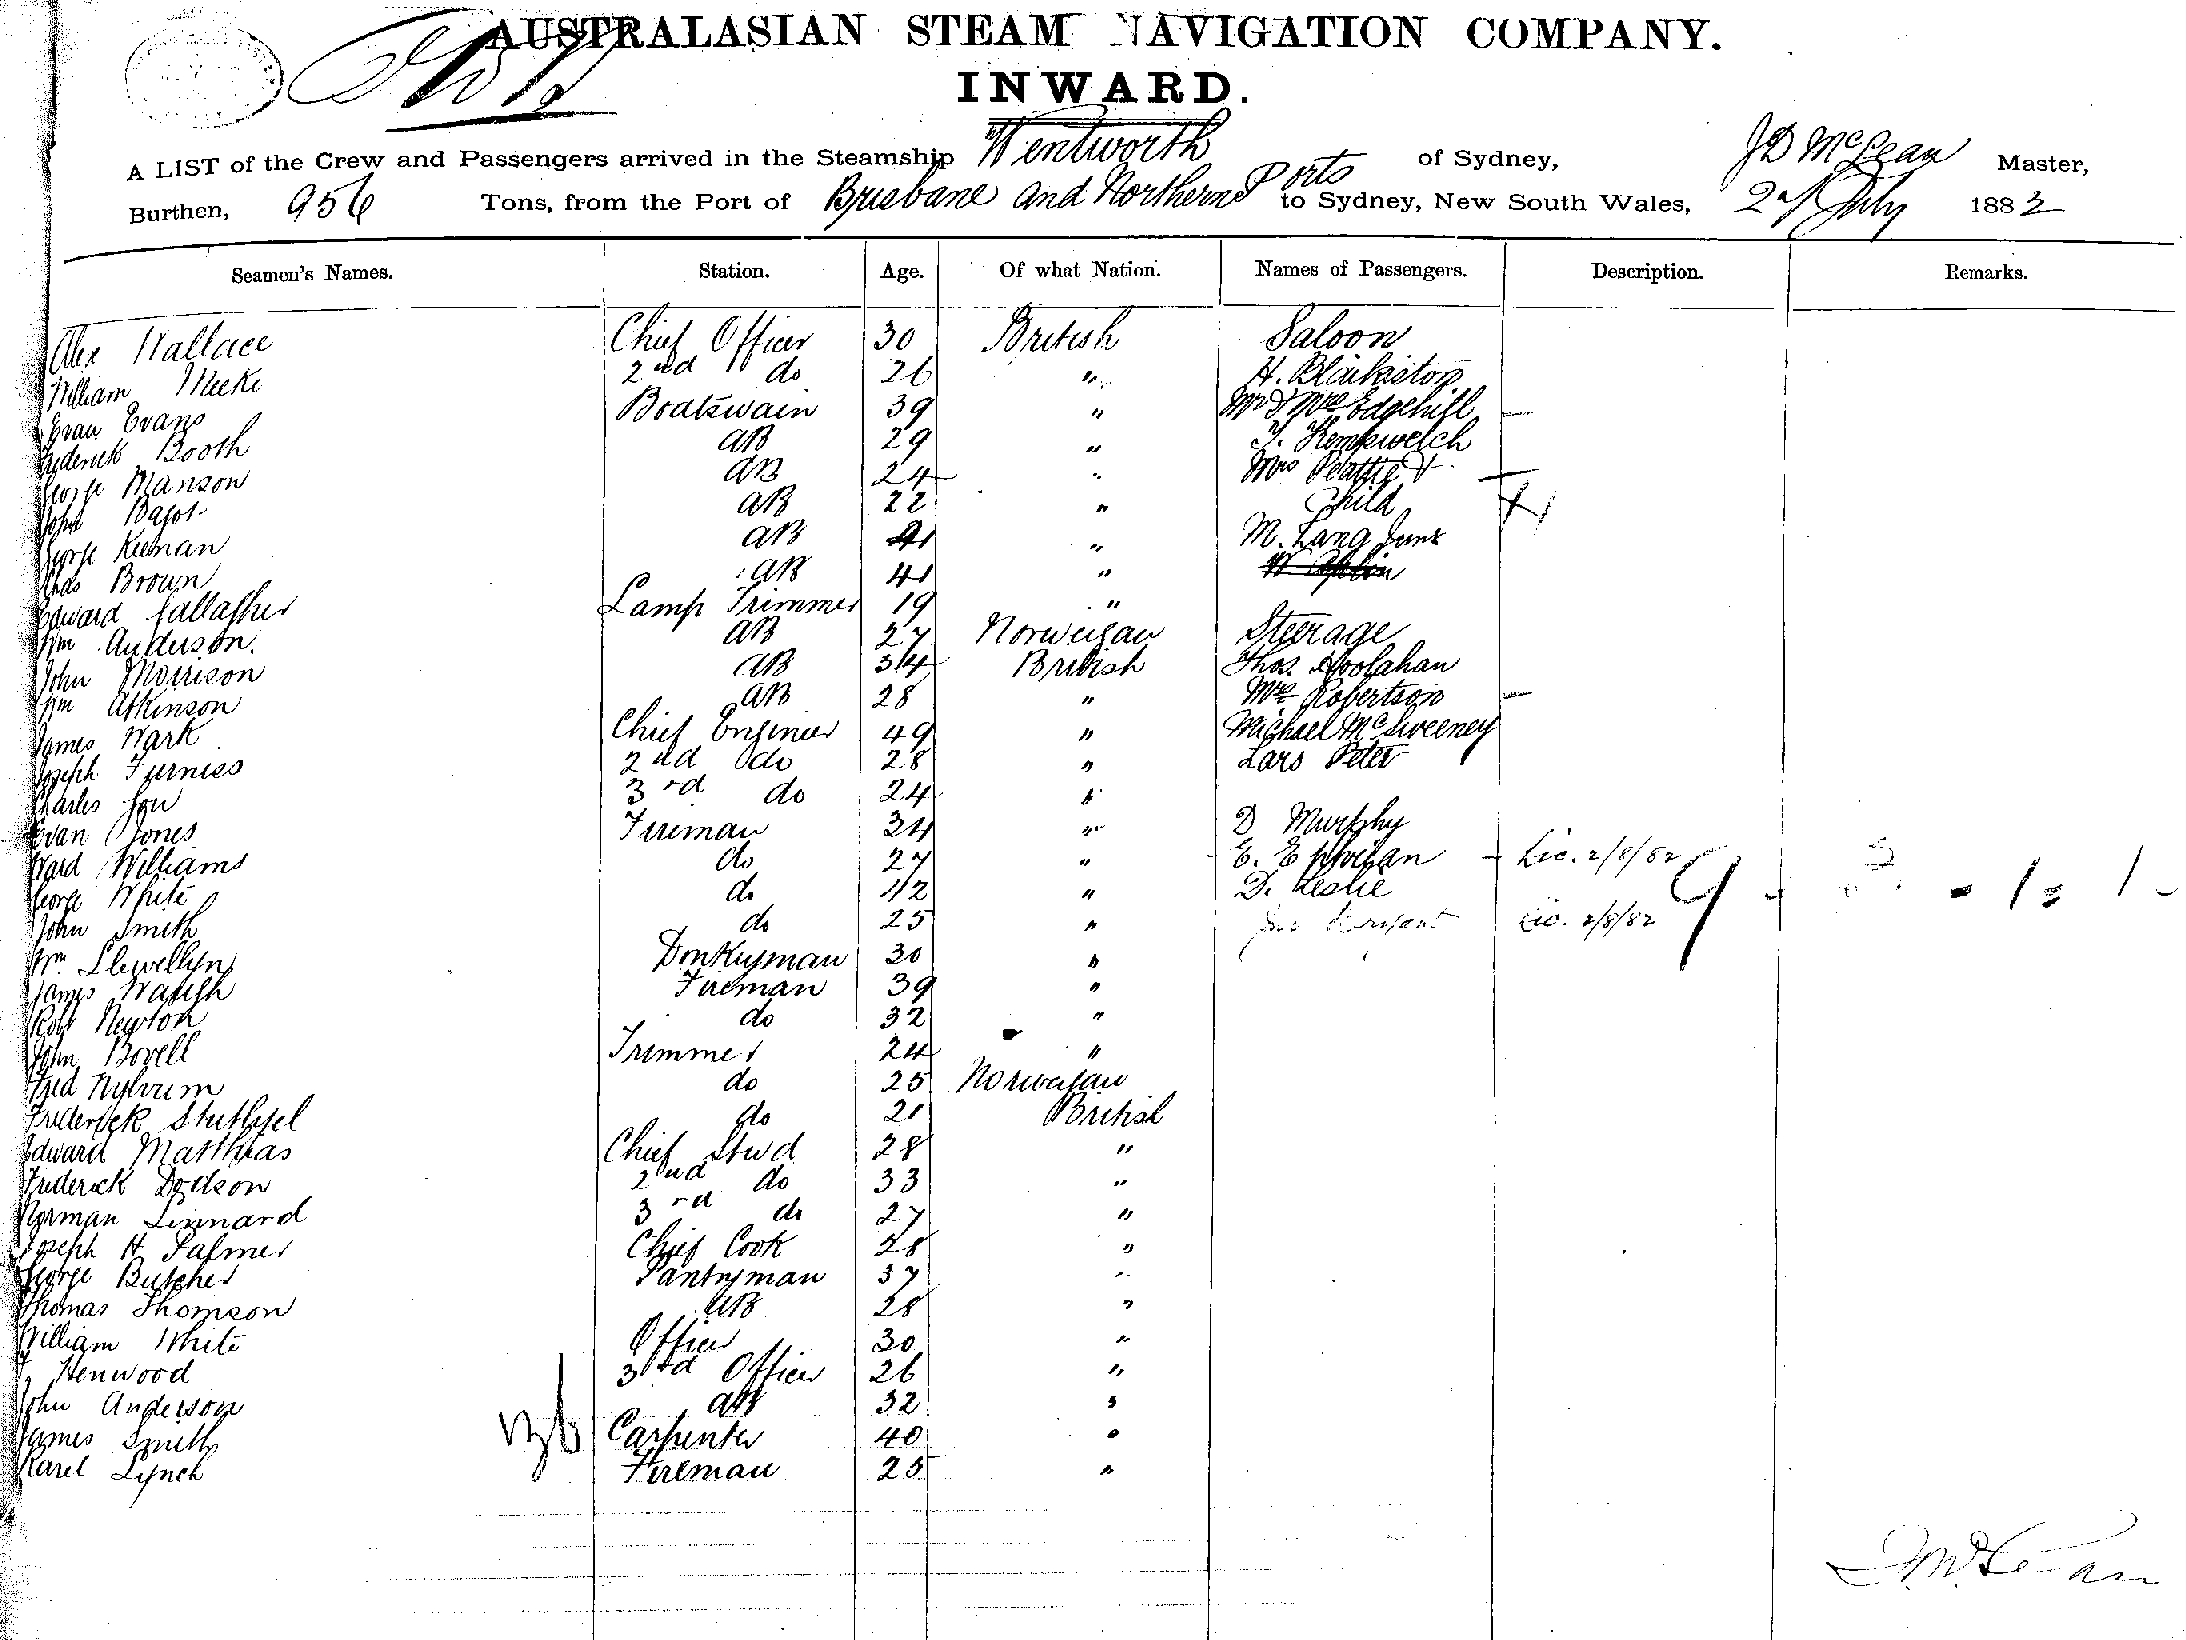 AUSTRALASIAN STEAM NAVIGATION COMPANY.
INWARD.
A LIST of the Crew and Passengers arrived in the Steamship Wentworth of Sydney, JD McLean Master,
Burthen, 956 Tons, from the Port of Brisbane and Northern Ports to Sydney, New South Wales, July 1882
Seamen's Names. Station. Age. Of what Nation. Names of Passengers. Description. Remarks.
Alex Wallace Chief Officer 30 British Saloon
William Meeke 2nd do 26 " H. Blakiston
Evan Evans Boatswain 39 " Mr & Mrs Edgehill
Frederick Booth AB 29 " Kempwelch
George Manson AB 24 " Mrs Peattie &
John AB 22 " Child
George Keenan AB 41 " M. Lang Junr
Chas Brown AB 41 "
Edward Gallagher Lamp Trimmer 19 "
Wm Anderson. AB 27 Norweigan Steerage
John Morrison AB 34 British Thos. Hoolahan
Wm Atkinson AB 28 " Mrs Robertson
James Wark Chief Engineer 49 " Michael McSweeney
Joseph Furness 2nd do 28 " Lars Peter
Charles 3rd do 24 "
Evan Jones Fireman 34 " D Murphy
Ward Williams do 27 " E. Lic. 2/8/82
George White do 42 " D. Leslie
John Smith do 25 " Lic. 2/8/82
Wm. Llewellyn Donkeyman 30 "
James Waugh Fireman 39 "
Robt Newton do 32 "
John Bovell Trimmer 24 "
Fred do 25 Norweigan
Frederick do 21 British
Edward Matthias Chief Stwd 28 "
Frederick Dodson 2nd do 33 "
Norman Linnard 3rd do 27 "
Joseph H Palmer Chief Cook 28 "
George Butcher Pantryman 37 "
Thomas Thomson AB 28 "
William White Officer 30 "
Henwood 3rd Officer 26 "
John Anderson AB 32 "
James Smith Carpenter 40 "
Karel Lynch Fireman 25 "